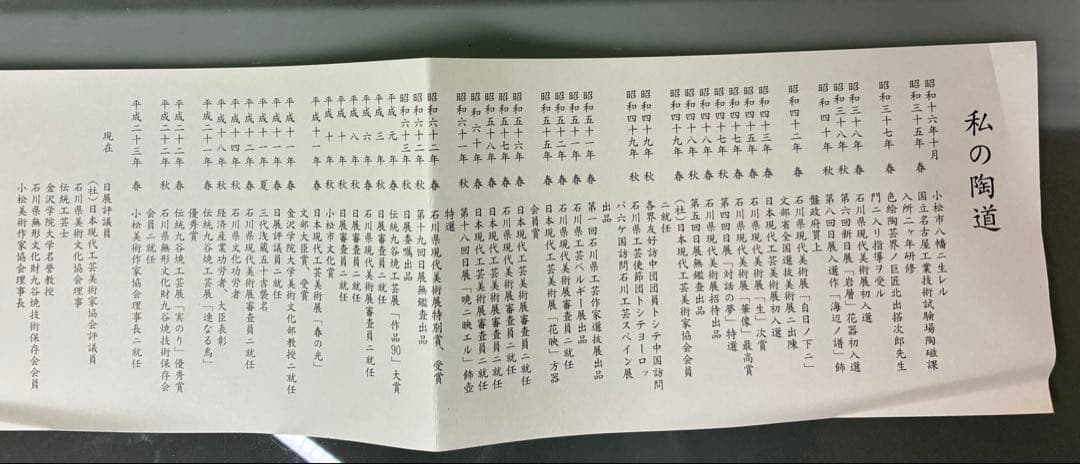 私の陶道
昭和十六年十月 小松市八幡ニ生レル
昭和三十五年 春 国立名古屋工業技術試験場陶磁課
入所二ヶ年研修
昭和三十七年 春 色絵陶芸界ノ巨匠北出搭次郎先生
門ニ入リ指導ヲ受ル
昭和三十八年 春 石川県現代美術展初入選
昭和三十八年 秋 第六回新日展「岩層」花器初入選
昭和四十年 秋 第八回日展入選作「海辺ノ譜」飾
盤政府買上
昭和四十二年 春 文部省全国選抜美術展ニ出陳
石川県現代美術展「自日ノ下ニ」
日本現代工芸美術展初入選
昭和四十三年 春 石川県現代美術展「生」次賞
昭和四十五年 春 石川県現代美術展「華像」最高賞
昭和四十七年 秋 第四回日展「対話の夢」特選
昭和四十八年 春 石川県現代美術展招待出品
昭和四十八年 秋 第五回日展無鑑査出品
昭和四十九年 春 (社)日本現代工芸美術家協会会員
ニ就任
昭和四十九年 秋 各界友好訪中国団員トシテ中国訪問
昭和四十九年 秋 石川県工芸使節団トシテヨーロッ
パ六ケ国訪問石川工芸スペイン展
出品
昭和五十一年 春 第一回石川県工芸作家選抜展出品
石川県工芸ベルギー展出品
石川県現代美術展審査員ニ就任
昭和五十五年 春 日本現代工芸美術展「花映」方器
会員賞
昭和五十六年 春 日本現代工芸美術展審査員ニ就任
昭和五十八年 春 石川県現代美術展審査員ニ就任
昭和六十年 春 日本現代工芸美術展審査員ニ就任
昭和六十一年 秋 第十八回日展「晩ニ映エル」飾壺
特選
昭和六十二年 春 石川県現代美術展特別賞、受賞
昭和六十二年 秋 第十九回日展無鑑査出品
昭和六十三年 秋 日展委嘱出品
平成元年 春 伝統九谷焼工芸展「作品90」大賞
平成三年 秋 日展審査員ニ就任
平成六年 春 石川県現代美術展審査員ニ就任
平成八年 秋 日展審査員ニ就任
平成十年 秋 小松市文化賞
平成十一年 春 日本現代工芸美術展「春の光」
文部大臣賞、受賞
平成十一年 春 金沢学院大学美術文化部教授ニ就任
平成十一年 秋 日展評議員ニ就任
平成十一年 夏 三代浅蔵五十吉襲名
平成十二年 春 石川県現代美術展審査員ニ就任
平成十四年 秋 石川県文化功労者
平成十八年 秋 経済産業功労者、大臣表彰
平成二十一年 春 伝統九谷焼工芸展「連なる鳥」
優秀賞
平成二十二年 春 伝統九谷焼工芸展「実のり」優秀賞
平成二十二年 秋 石川県無形文化財九谷焼技術保存会
会員ニ就任
平成二十三年 春 小松美術作家協会理事長ニ就任
現在 日展評議員
(社)日本現代工芸美術家協会評議員
石川県美術文化協会理事
伝統工芸士
金沢学院大学名誉教授
石川県無形文化財九谷焼技術保存会会員
小松美術作家協会理事長